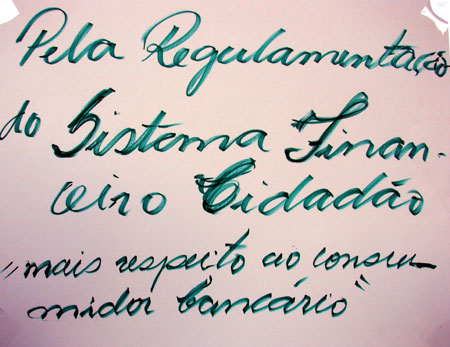 Pela Regulamentação
do Sistema Finan-
ceiro Cidadão
"mais respeito ao consu-
midor bancário"